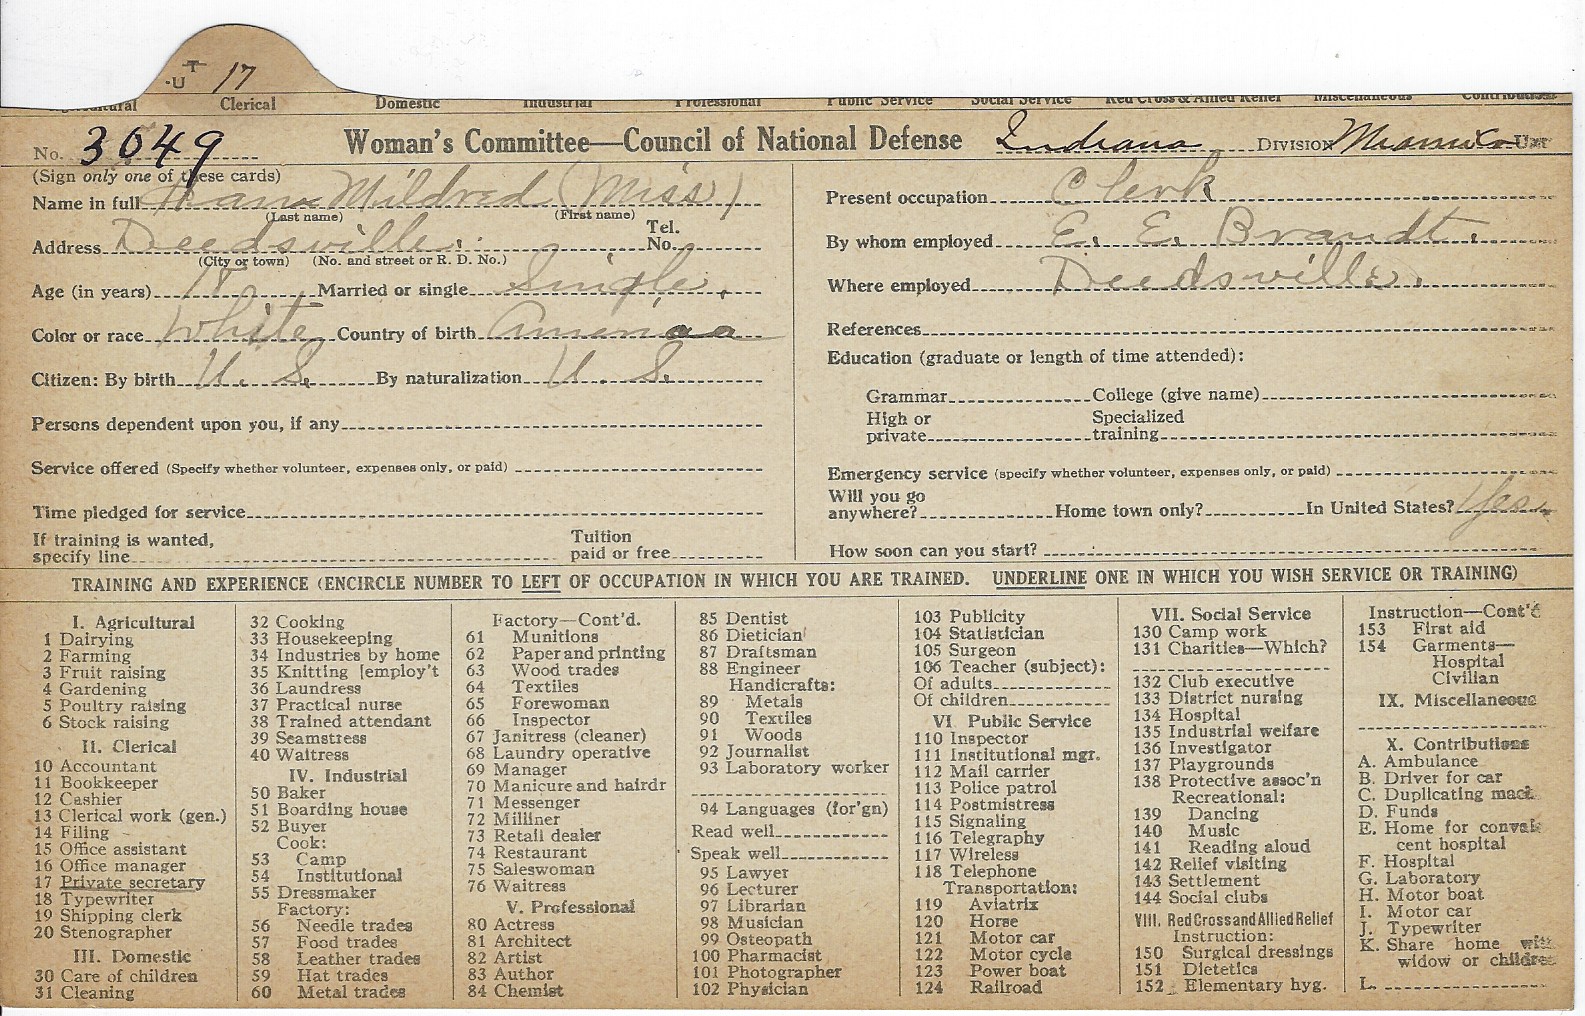 T
-U 17
Clerical Domestic Industrial Professional Public Service Social Service Red Cross & Allied Relief Miscellaneous Contributions
No. 3049 Woman's Committee—Council of National Defense Indiana Division Miami Co Unit
(Sign only one of these cards)
Name in full Mildred (Miss)
(Last name) (First name)
Address Deedsville. Tel. No.
(City or town) (No. and street or R. D. No.)
Age (in years) 18 Married or single Single.
Color or race White Country of birth America
Citizen: By birth U. S. By naturalization U. S.
Persons dependent upon you, if any
Service offered (Specify whether volunteer, expenses only, or paid)
Time pledged for service
If training is wanted, specify line Tuition paid or free
Present occupation Clerk
By whom employed E. E. Brandt.
Where employed Deedsville.
References
Education (graduate or length of time attended):
Grammar College (give name)
High or private Specialized training
Emergency service (specify whether volunteer, expenses only, or paid)
Will you go anywhere? Home town only? In United States? Yes.
How soon can you start?
TRAINING AND EXPERIENCE (ENCIRCLE NUMBER TO LEFT OF OCCUPATION IN WHICH YOU ARE TRAINED. UNDERLINE ONE IN WHICH YOU WISH SERVICE OR TRAINING)
I. Agricultural
1 Dairying
2 Farming
3 Fruit raising
4 Gardening
5 Poultry raising
6 Stock raising
II. Clerical
10 Accountant
11 Bookkeeper
12 Cashier
13 Clerical work (gen.)
14 Filing
15 Office assistant
16 Office manager
17 Private secretary
18 Typewriter
19 Shipping clerk
20 Stenographer
III. Domestic
30 Care of children
31 Cleaning
32 Cooking
33 Housekeeping
34 Industries by home
35 Knitting [employ't
36 Laundress
37 Practical nurse
38 Trained attendant
39 Seamstress
40 Waitress
IV. Industrial
50 Baker
51 Boarding house
52 Buyer
Cook:
53 Camp
54 Institutional
55 Dressmaker
Factory:
56 Needle trades
57 Food trades
58 Leather trades
59 Hat trades
60 Metal trades
Factory—Cont'd.
61 Munitions
62 Paper and printing
63 Wood trades
64 Textiles
65 Forewoman
66 Inspector
67 Janitress (cleaner)
68 Laundry operative
69 Manager
70 Manicure and hairdr
71 Messenger
72 Milliner
73 Retail dealer
74 Restaurant
75 Saleswoman
76 Waitress
V. Professional
80 Actress
81 Architect
82 Artist
83 Author
84 Chemist
85 Dentist
86 Dietician
87 Draftsman
88 Engineer
Handicrafts:
89 Metals
90 Textiles
91 Woods
92 Journalist
93 Laboratory worker
94 Languages (for'gn)
Read well
Speak well
95 Lawyer
96 Lecturer
97 Librarian
98 Musician
99 Osteopath
100 Pharmacist
101 Photographer
102 Physician
103 Publicity
104 Statistician
105 Surgeon
106 Teacher (subject):
Of adults
Of children
VI Public Service
110 Inspector
111 Institutional mgr.
112 Mail carrier
113 Police patrol
114 Postmistress
115 Signaling
116 Telegraphy
117 Wireless
118 Telephone
Transportation:
119 Aviatrix
120 Horse
121 Motor car
122 Motor cycle
123 Power boat
124 Railroad
VII. Social Service
130 Camp work
131 Charities—Which?
132 Club executive
133 District nursing
134 Hospital
135 Industrial welfare
136 Investigator
137 Playgrounds
138 Protective assoc'n
Recreational:
139 Dancing
140 Music
141 Reading aloud
142 Relief visiting
143 Settlement
144 Social clubs
VIII. Red Cross and Allied Relief
Instruction:
150 Surgical dressings
151 Dietetics
152 Elementary hyg.
Instruction—Cont'd
153 First aid
154 Garments—
Hospital
Civilian
IX. Miscellaneous
X. Contributions
A. Ambulance
B. Driver for car
C. Duplicating mach.
D. Funds
E. Home for convales
cent hospital
F. Hospital
G. Laboratory
H. Motor boat
I. Motor car
J. Typewriter
K. Share home with
widow or children
L.